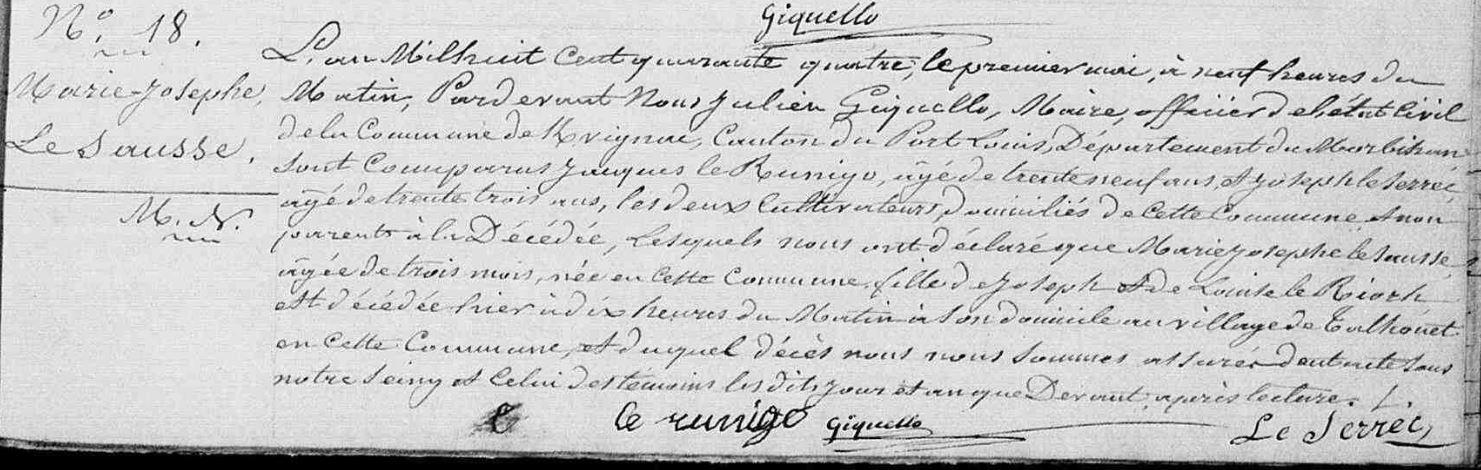 Giquello
N.º 18.
Marie-Josephe,
Le Sausse.
M. N.
L'an Mil huit Cent quarante quatre, le premier mai, à neuf heures du
Matin, Pardevant Nous Julien Giquello, Maire, officier de l'état Civil
de la Commune de Kvignac, Canton du Port Louis, Département du Morbihan
sont Comparus Jacques le Runigo, âgé de trente neuf ans, et Joseph le Serrec,
âgé de trente trois ans, les deux Cultivateurs, domiciliés de cette Commune et non
parents à la Décédée, lesquels nous ont déclaré que Marie Josephe le Sausse
âgée de trois mois, née en Cette Commune, fille de Joseph et de Louise le Riorh
est décédée hier à dix heures du Matin à son domicile au village de Talhouet
en Cette Commune, et duquel décès nous nous sommes assurés dont acte sous
notre Seing et Celui des témoins les dits jour et an que Devant, après lecture. /.
le runigo Giquello Le Serrec